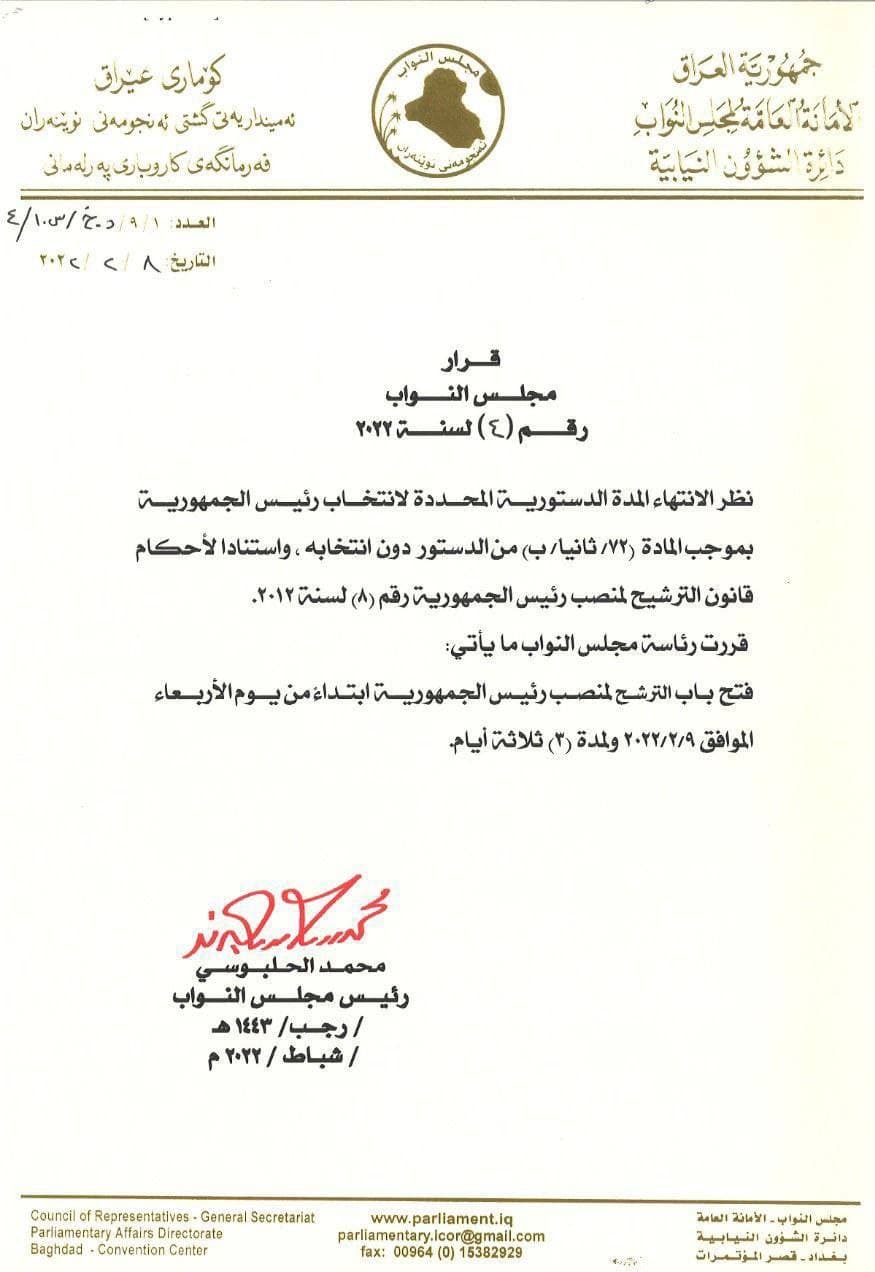 جمهورية العراق
الأمانة العامة لمجلس النواب
دائرة الشؤون النيابية
مجلس النواب
ئەنجومەنی نوێنەران
كۆماری عێراق
ئەمینداریەتی گشتی ئەنجومەنی نوێنەران
فەرمانگەی کاروباری پەرلەمانی
العدد: ٩/١/
التاريخ: ٨ / ٢ / ٢٠٢٢
قـــرار
مجلـس النـــواب
رقـــم (٤) لسنـــة ٢٠٢٢
نظر الانتهاء المدة الدستوريـة المحددة لانتخـاب رئيس الجمهوريـة
بموجب المادة (٧٢/ ثانيا/ ب) من الدستور دون انتخابه ، واستنادا لأحكام
قانون الترشيح لمنصب رئيس الجمهورية رقم (٨) لسنة ٢٠١٢.
قررت رئاسة مجلس النواب ما يأتي:
فتح بـاب الترشح لمنصب رئيس الجمهوريـة ابتـداءً من يـوم الأربعـاء
الموافق ٢٠٢٢/٢/٩ ولمدة (٣) ثلاثة أيام.
محمـد الحلبـوسـي
رئيـس مجلـس النـواب
/ رجـب/ ١٤٤٣ هـ
/ شبـاط / ٢٠٢٢ م
Council of Representatives - General Secretariat
Parliamentary Affairs Directorate
Baghdad - Convention Center
www.parliament.iq
parliamentary.icor@gmail.com
fax: 00964 (0) 15382929
مجلس النواب - الأمانة العامة
دائرة الشؤون النيـابيـة
بغـداد - قصر المؤتمرات